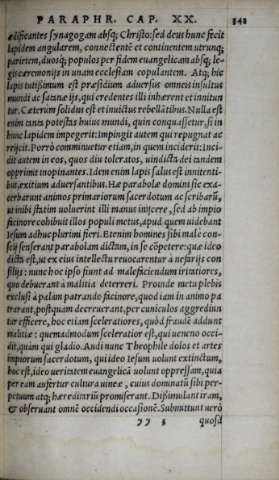 PARAPHR. CAP. XX. 341
ædificantes synagogam absq; Christo: sed deus hunc fecit
lapidem angularem, connectentẽ et continentem utrunq;
parietem, duosq; populos per fidem euangelicam absq; le-
gis cæremonijs in unam ecclesiam copulantem. Atq; hic
lapis tutissimum est præsidium aduersus omneis insultus
mundi ac satanæ ijs, qui credentes illi inhærent et innitun
tur. Cæterum solidus est et inuictus rebellãtibus. Nulla est
enim tanta potestas huius mundi, quin conquassetur, si in
hunc lapidem impegerit: Impingit autem qui repugnat ac
reijcit. Porrò comminuetur etiam, in quem inciderit: Inci-
dit autem in eos, quos diu toleratos, uindicta dei tandem
opprimit inopinantes. Idem enim lapis salus est innitenti-
bus, exitium aduersantibus. Hæ parabolæ dominicæ exa-
cerbarunt animos primariorum sacerdotum ac scribarũ,
ut inibi statim uoluerint illi manus inijcere, sed ab impio
facinore cohibuit illos populi metus, apud quem uidebant
Iesum adhuc plurimi fieri. Etenim homines sibi malè con-
scij senserant parabolam dictam, in se cõpetere: quæ ideo
dicta est, ut ex eius intellectu reuocarentur à nefarijs con
silijs: nunc hoc ipso fiunt ad maleficiendum irritatiores,
quo debuerant à malitia deterreri. Proinde metu plebis
exclusi à palam patrando facinore, quod iam in animo pa
trarant, postquam decreuerant, per cuniculos aggrediun
tur efficere, hoc etiam sceleratiores, quòd fraudẽ addunt
malitiæ: quemadmodum sceleratior est, qui ueneno occi-
dit, quàm qui gladio. Audi nunc Theophile dolos et artes
impiorum sacerdotum, qui ideo Iesum uolunt extinctum,
hoc est, ideo ueritatem euangelicã uolunt oppressam, quia
per eam aufertur cultura uineæ, cuius dominatũ sibi per-
petuum atq; hæreditariũ promiserant. Dissimulant iram,
& obseruant omnẽ occidendi occasionẽ. Submittunt uerò
yy 3 quosd